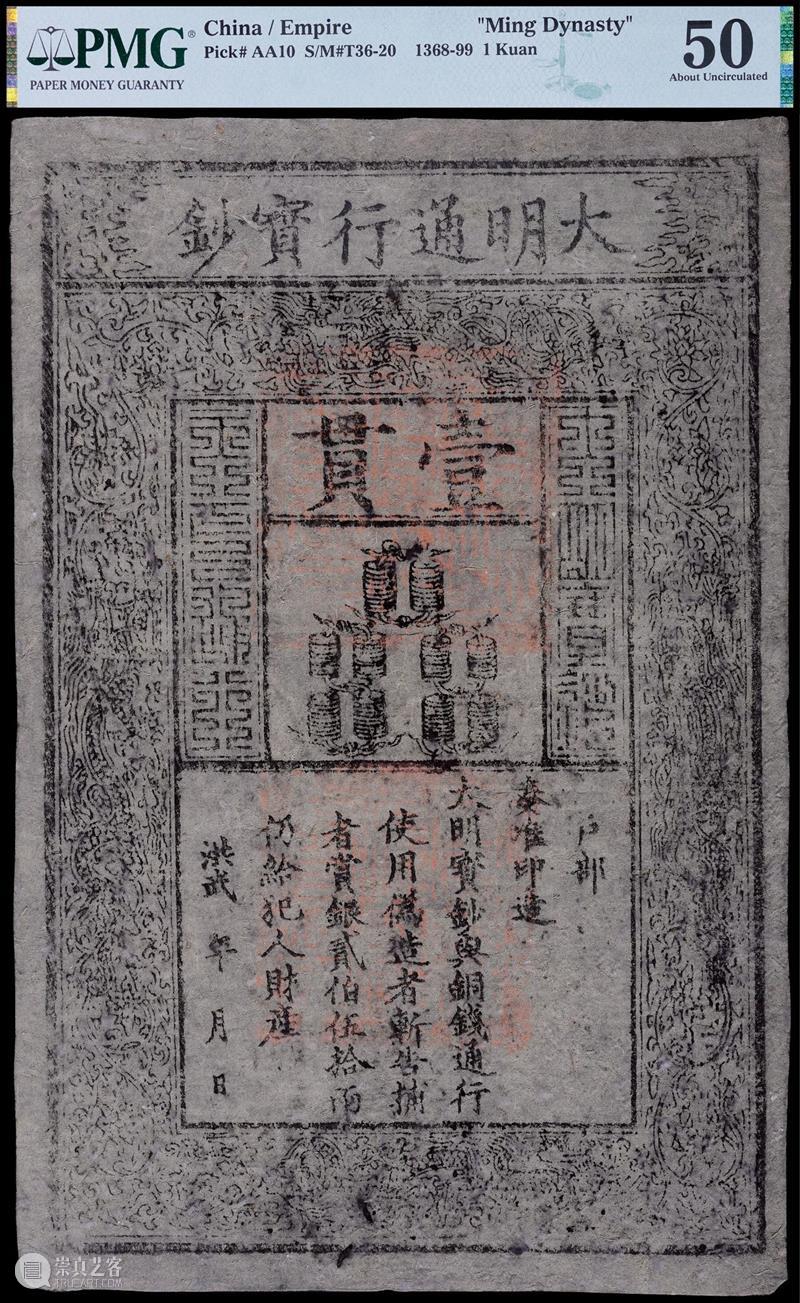 PMG®
PAPER MONEY GUARANTY
China / Empire "Ming Dynasty"
Pick# AA10 S/M#T36-20 1368-99 1 Kuan
50
About Uncirculated
大明通行寳鈔
壹貫
戶部
奏准印造
大明寳鈔與銅錢通行
使用偽造者斬告捕
者賞銀貳伯伍拾兩
仍給犯人財產
洪武 年 月 日
崇真艺客
TRUEART.COM